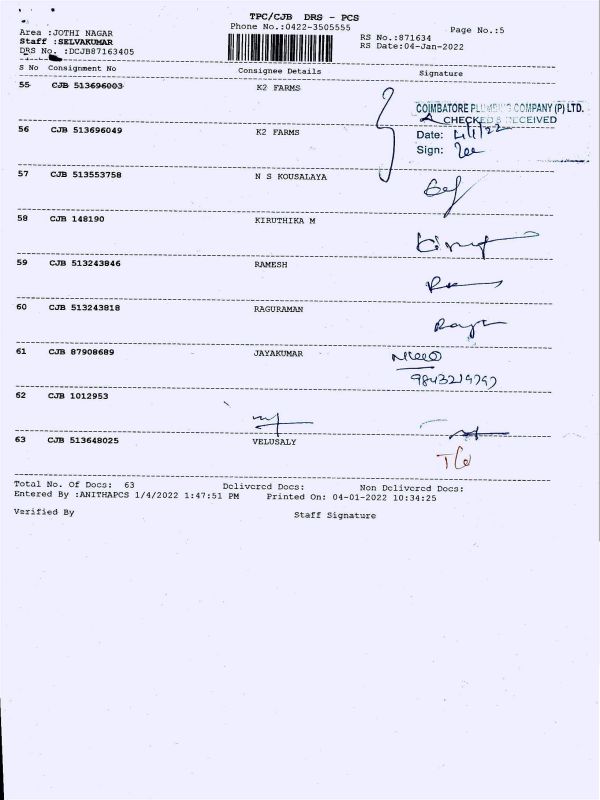 TPC/CJB DRS - PCS
Phone No.:0422-3505555
Page No.:5
Area :JOTHI NAGAR
RS No.:871634
Staff :SELVAKUMAR
RS Date:04-Jan-2022
DRS No. :DCJB87163405
S No Consignment No Consignee Details Signature
55 CJB 513696003 K2 FARMS
COIMBATORE PLUMBING COMPANY (P) LTD.
CHECKED & RECEIVED
56 CJB 513696049 K2 FARMS
Date: 4/1/22
Sign:
57 CJB 513553758 N S KOUSALAYA
58 CJB 148190 KIRUTHIKA M
59 CJB 513243846 RAMESH
60 CJB 513243818 RAGURAMAN
61 CJB 87908689 JAYAKUMAR
62 CJB 1012953
63 CJB 513648025 VELUSALY
Total No. Of Docs: 63 Delivered Docs: Non Delivered Docs:
Entered By :ANITHAPCS 1/4/2022 1:47:51 PM Printed On: 04-01-2022 10:34:25
Verified By Staff Signature